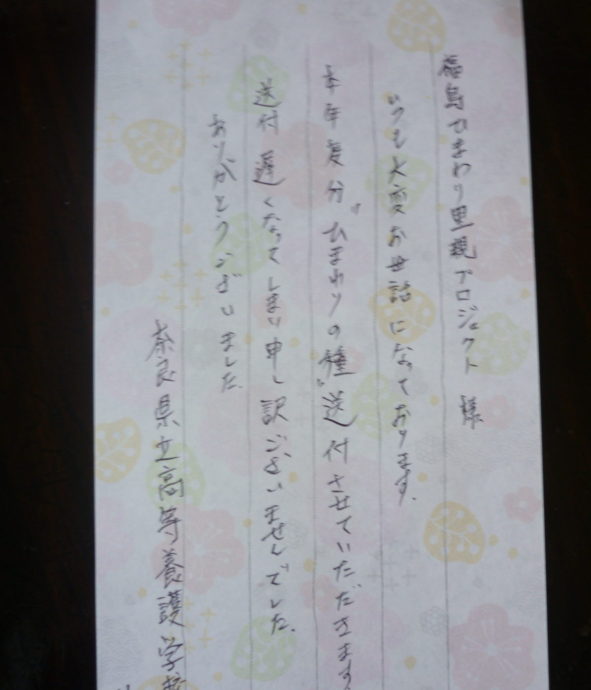 福島ひまわり里親プロジェクト 様
いつも大変お世話になっております。
本年度分『ひまわりの種』送付させていただきます
送付遅くなってしまい申し訳ございませんでした。
ありがとうございました。
奈良県立高等養護学校